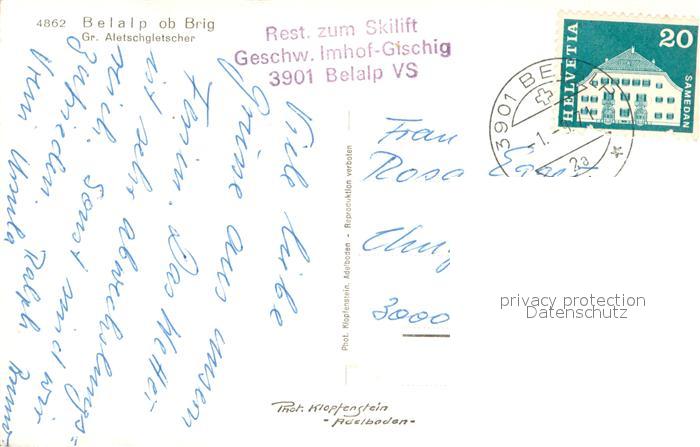 4862 Belalp ob Brig
Gr. Aletschgletscher
Rest. zum Skilift
Geschw. Imhof-Gischig
3901 Belalp VS
HELVETIA
20
SAMEDAN
3901 BE
1.
2a
Viele liebe
Grüsse aus unsern
Ferien. Das Wetter
ist sehr abwechslungs=
reich. Sonst sind wir
zufrieden.
Ursula Ralph
Frau
Rosa
3000
privacy protection
Datenschutz
Phot. Klopfenstein, Adelboden - Reproduktion verboten
Phot. Klopfenstein
- Adelboden -